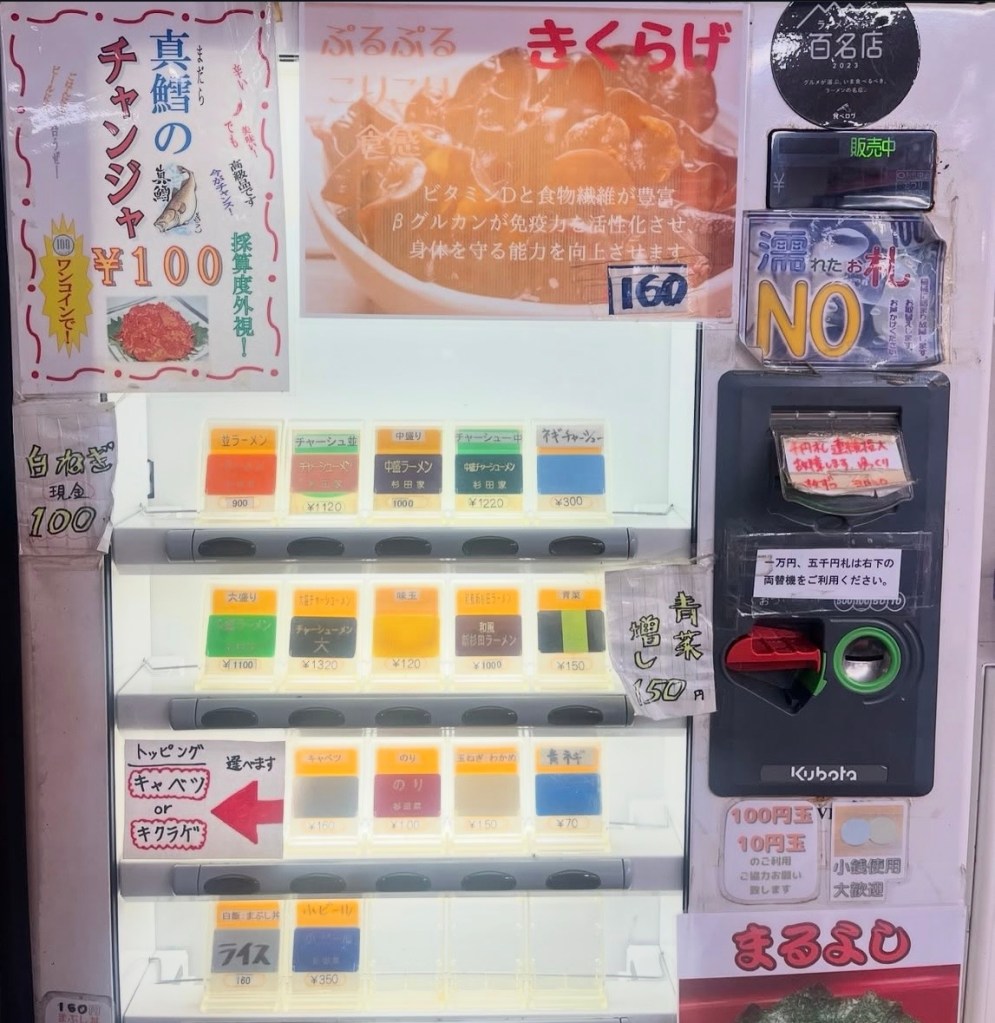 真鱈の
まだら
チャンジャ
高級品です
今がチャンス!
真鱈
¥100
100
ワンコインで!
採算度外視!
ぷるぷる
こりこり
食感
きくらげ
ビタミンDと食物繊維が豊富
βグルカンが免疫力を活性化させ、
身体を守る能力を向上させます
160
百名店
2023
食べログ
販売中
濡れたお札
NO
白ねぎ
現金
100
並ラーメン
900
チャーシュー並
¥1120
中盛り
中盛ラーメン
杉田家
1000
チャーシュー中
中盛チャーシューメン
杉田家
¥1220
ネギチャーシュー
¥300
千円札連続投入
故障します ゆっくり
一万円、五千円札は右下の
両替機をご利用ください。
大盛り
¥1100
チャーシューメン
大
¥1320
味玉
¥120
和風
¥1000
青菜
¥150
青菜
増し
150円
トッピング
選べます
キャベツ
or
キクラゲ
キャベツ
¥160
のり
のり
杉田家
¥100
玉ねぎ・わかめ
¥150
青ネギ
¥70
Kubota
100円玉
10円玉
のご利用
ご協力お願い
致します
小銭使用
大歓迎
白飯・まぶし丼
ライス
160
小ビール
¥350
まるよし
160円
まぶし丼